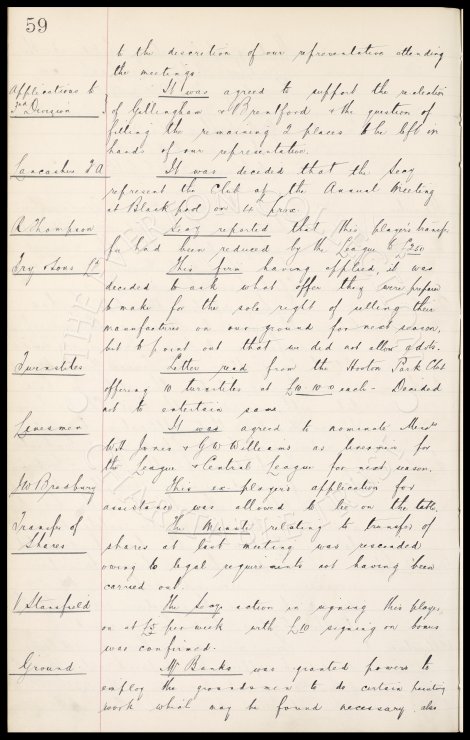 59
to the discretion of our representative attending
the meetings.
Applications to
3rd Division
It was agreed to support the re-election
of Gillingham & Brentford & the question of
filling the remaining 2 places to be left in
hands of our representative.
Lancashire F A
It was decided that the Secy
represent the Club at the Annual Meeting
at Blackpool on 4th prox.
R Thompson
Secy reported that this player's transfer
fee had been reduced by the League to £250
Fry & Sons Ld
This firm having applied, it was
decided to ask what offer they were prepared
to make for the sole right of selling their
manufactures on our ground for next season,
but to point out that we did not allow advts.
Turnstiles
Letter read from the Hooton Park Club
offering 10 turnstiles at £10 10 0 each. Decided
not to entertain same.
Linesmen
It was agreed to nominate Messrs
W H Jones & G W Williams as linesmen for
the League & Central League for next season.
JW Bradbury
This ex player's application for
assistance was allowed to lie on the table.
Transfer of
Shares
The Minute relating to transfer of
shares at last meeting was rescinded
owing to legal requirements not having been
carried out.
J Stansfield
The Secys action in signing this player
on at £5 per week with £10 signing on bonus
was confirmed.
Ground
Mr Banks was granted powers to
employ the groundsmen to do certain painting
work which may be found necessary, also